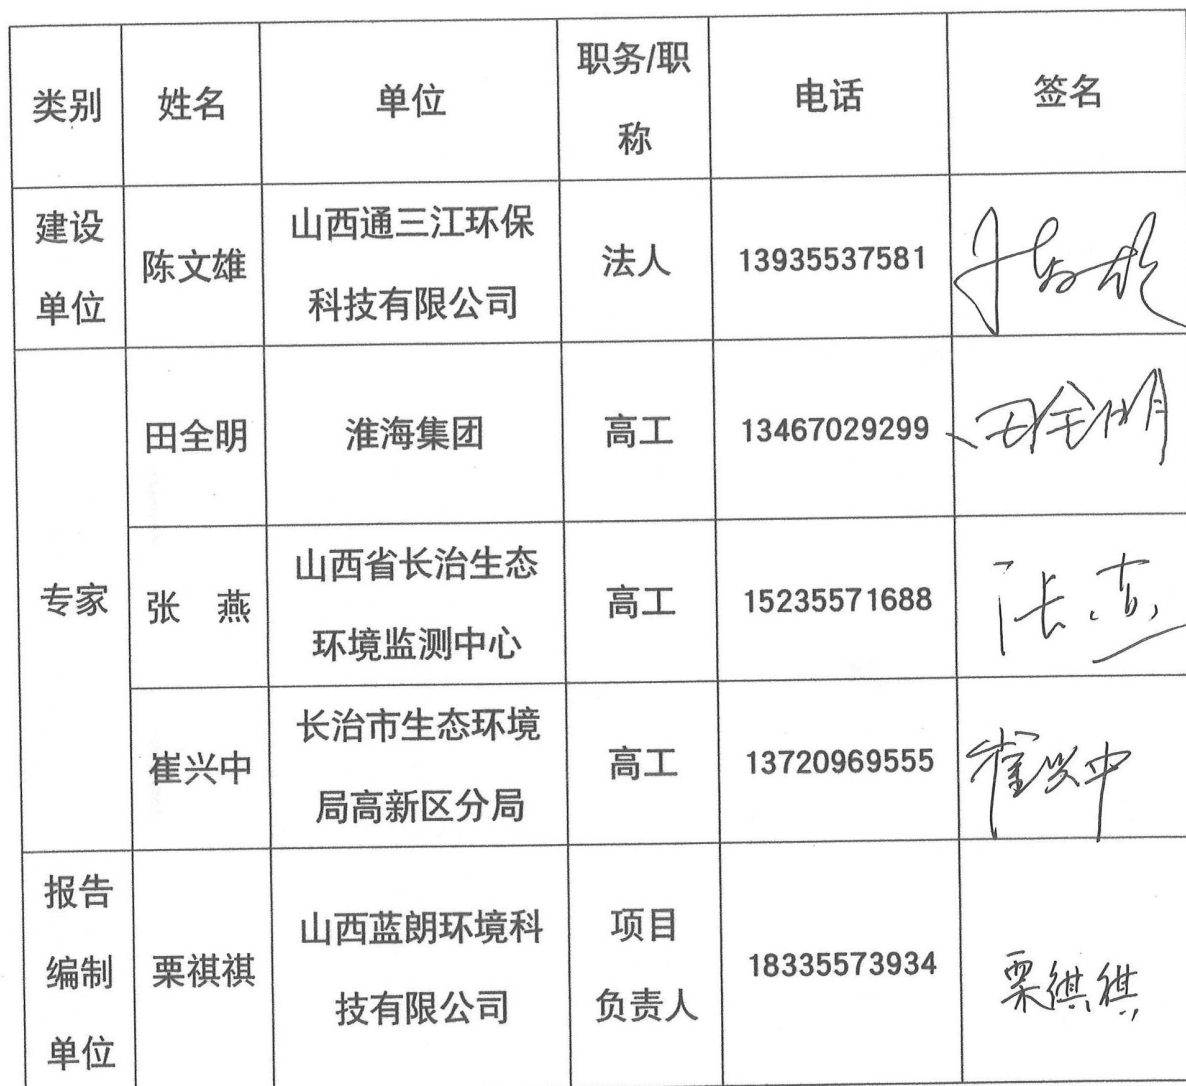 类别 姓名 单位 职务/职
称 电话 签名
建设
单位 陈文雄 山西通三江环保
科技有限公司 法人 13935537581
专家 田全明 淮海集团 高工 13467029299 田全明
张 燕 山西省长治生态
环境监测中心 高工 15235571688 张燕
崔兴中 长治市生态环境
局高新区分局 高工 13720969555 崔兴中
报告
编制
单位 栗祺祺 山西蓝朗环境科
技有限公司 项目
负责人 18335573934 栗祺祺